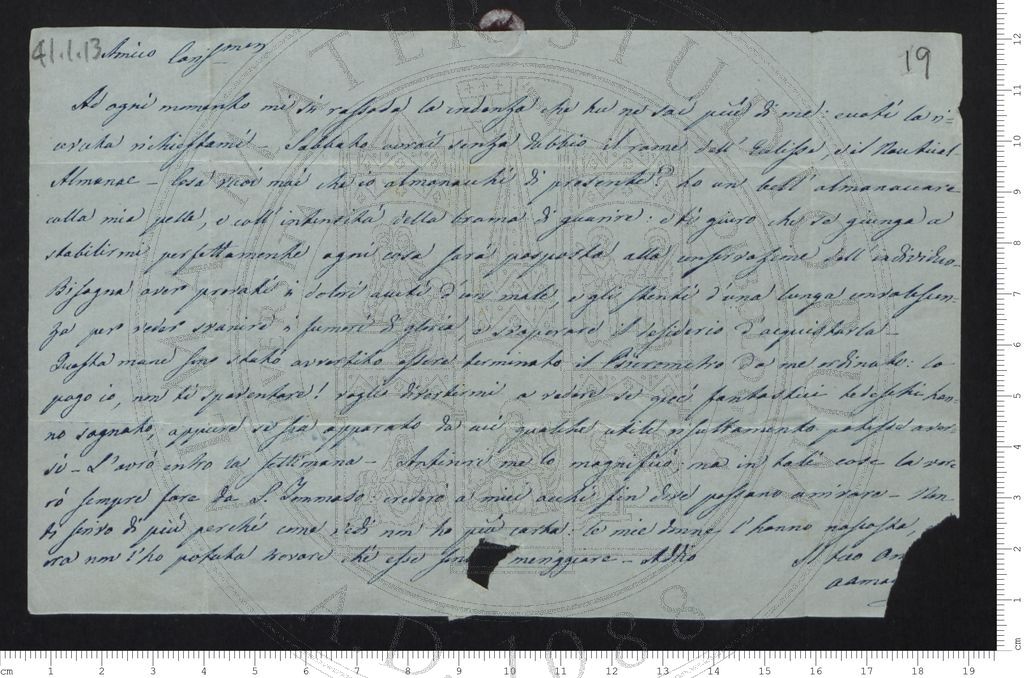 41.1.13
19
Amico Cariss.men
Ad ogni momento mi si rassoda la credenza che tu ne sai più di me: eccoti la ri=
cevuta richiestami - Sabbato avrai senza dubbio il rame dell'Eclisse, ed il Nautical=
Almanac - Cosa vuoi mai che io almanacchi di presente? ho un bell'almanaccare
colla mia pelle, e coll'intensità della brama di guarire: e ti giuro che se giungo a
stabilirmi perfettamente ogni cosa sarà posposta alla conservazione dell'individuo.
Bisogna aver provati i dolori acuti d'un male, e gli stenti d'una lunga convalescen=
za per veder svanire i fumeti di gloria, e svaporare il desiderio d'acquistarla -
Questa mane sono stato avvertito essere terminato il da me ordinato: lo
pago io, non ti spaventare! voglio divertirmi a vedere se que' fantastici tedeschi han=
no sognato, oppure se sia apparato da cui qualche utile risultamento potesse aver=
si - L'avrò entro la settimana - me lo magnificò; ma in tali cose la vor=
rò sempre fare da S. Tommaso: crederò a miei occhi fin dove possano arrivare - Non
ti scrivo di più perché come vedi non ho più carta: le mie donne l'hanno nascosta,
ora non l'ho potuta trovare ché esse sono menggiare - Addio
Il tuo